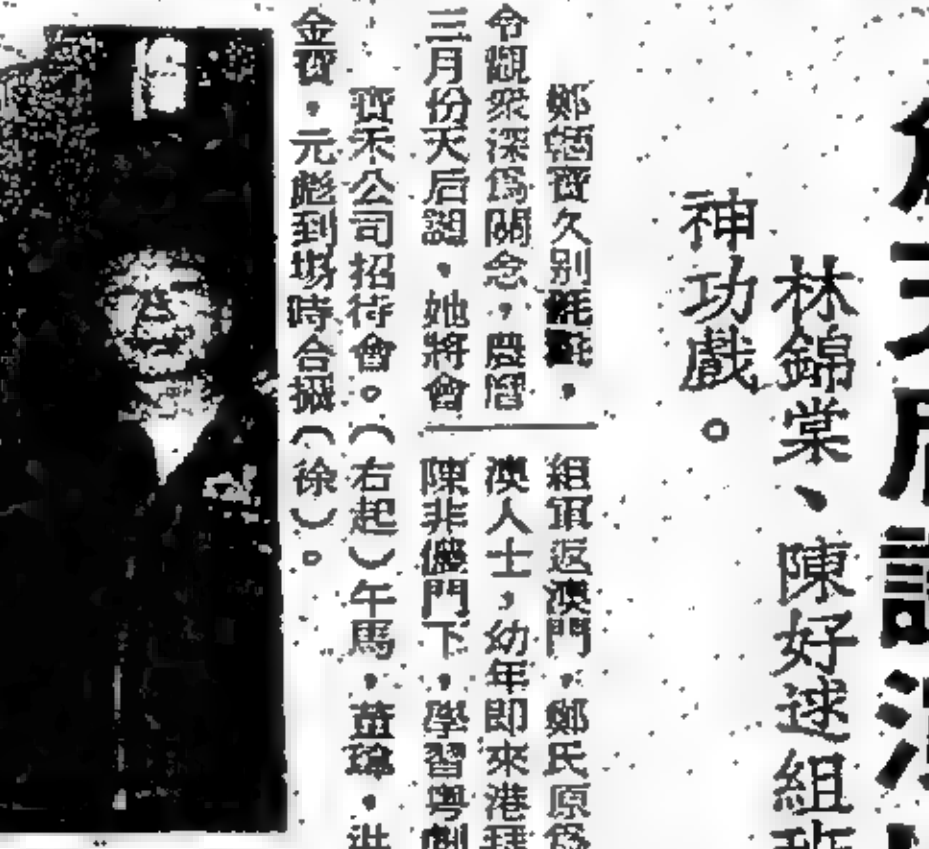 天后誕演
林錦棠、陳好逑組班
神功戲。
鄭幗寶久别氍毹，
令觀衆深爲關念，農曆
三月份天后誕，她將會
組軍返澳門，鄭氏原爲
澳人士，幼年即來港拜
陳非儂門下，學習粤劇
寶禾公司招待會。（右起）午馬，董瑋，洪
金寶，元彪到塲時合攝（徐）。